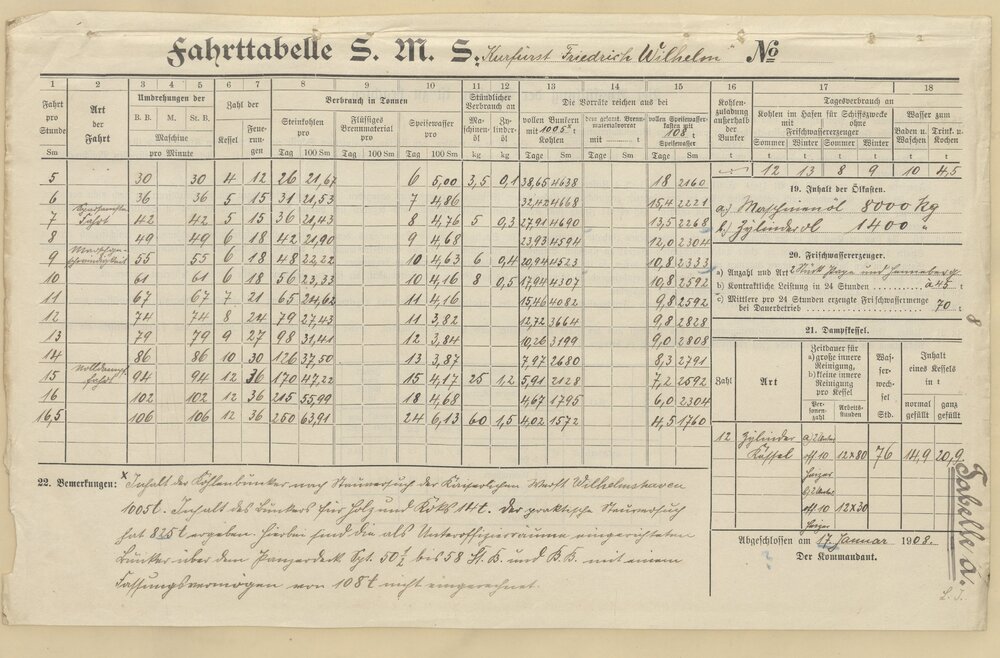 Fahrttabelle S. M. S. "Kurfürst Friedrich Wilhelm" №
1 2 3 4 5 6 7 8 9 10 11 12 13 14 15 16 17 18
Fahrt pro Stunde Sm
Art der Fahrt
Umdrehungen der
B. B. M. St. B.
Maschine
pro Minute
Zahl der
Kessel Feuerungen
Verbrauch in Tonnen
Steinkohlen pro Flüssiges Brennmaterial pro Speisewasser pro
Tag 100 Sm. Tag 100 Sm. Tag 100 Sm.
Stündlicher Verbrauch an
Maschinenöl Zylinderöl
kg kg
Die Vorräte reichen aus bei
vollen Bunkern mit 1005 x t Kohlen
dem gesamt. Brennmaterialvorrat mit t
vollen Speisewasserkasten mit 108 t Speisewasser
Tage Sm Tage Sm Tage Sm
Kohlenzuladung außerhalb der Bunker
t
Tagesverbrauch an
Kohlen im Hafen für Schiffszwecke
mit ohne
Frischwassererzeuger
Sommer Winter Sommer Winter
t t t t
Wasser zum
Baden u. Waschen Trink. u. Kochen
t t
12 13 8 9 10 4,5
5 30 30 4 12 26 21,67 6 5,00 3,5 0,1 38,65 4638 18 2160
6 36 36 5 15 31 21,53 7 4,86 32,42 4668 15,4 2221
7 Fahrt 42 42 5 15 36 21,43 8 4,76 5 0,3 27,91 4690 13,5 2268
8 49 49 6 18 42 21,90 9 4,68 23,93 4594 12,0 2304
9 Marschgeschwindigkeit 55 55 6 18 48 22,22 10 4,63 6 0,4 20,94 4523 10,8 2333
10 61 61 6 18 56 23,33 10 4,16 8 0,5 17,94 4307 10,8 2592
11 67 67 7 21 65 24,62 11 4,16 15,46 4082 9,8 2592
12 74 74 8 24 79 27,43 11 3,82 12,72 3664 9,8 2828
13 79 79 9 27 98 31,41 12 3,84 10,26 3199 9,0 2808
14 86 86 10 30 126 37,50 13 3,87 7,97 2680 8,3 2791
15 Volldampf Fahrt 94 94 12 36 170 47,22 15 4,17 25 1,2 5,91 2128 7,2 2592
16 102 102 12 36 215 55,99 18 4,68 4,67 1795 6,0 2304
16,5 106 106 12 36 250 63,91 24 6,13 60 1,5 4,02 1572 4,5 1760
19. Inhalt der Ölkasten.
a.) Maschinenöl 8000 Kg
b.) Zylinderöl 1400 "
20. Frischwassererzeuger.
a) Anzahl und Art 2 Stück Pape und Henneberg
b) Kontraktliche Leistung in 24 Stunden à 45 t
c) Mittlere pro 24 Stunden erzeugte Frischwassermenge
bei Dauerbetrieb 70 t
8
21. Dampfkessel.
Zahl
Art
Zeitdauer für
a) große innere Reinigung,
b) kleine innere Reinigung
pro Kessel
Personenzahl Arbeitsstunden
Wasserwechsel Std.
Inhalt eines Kessels in t
normal gefüllt ganz gefüllt
12 Zylinder Kessel
a) 2 Unter
off. 10 12x80 76 14,9 20,9
Heizer
b) 2 Unter
off. 10 12x30
Heizer
Abgeschlossen am 17. Januar 1908.
Der Kommandant.
?
22. Bemerkungen: x Inhalt der Kohlenbunker nach Stauversuch der Kaiserlichen Werft Wilhelmshaven
1005 t. Inhalt des Bunkers für Holz und Koks 14 t. Der praktische Stauversuch
hat 825 t ergeben. Hierbei sind die als Unteroffizierräume eingerichteten
Bunker über dem Panzerdeck Spt. 50 ½ bis 58 St. B. und B. B. mit einem
Fassungsvermögen von 108 t nicht eingerechnet.
Tabelle a.
L. I.